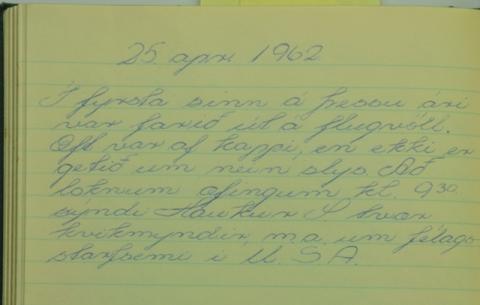 25. apr. 1962
Í fyrsta sinn á þessu ári
var farið út á flugvöll.
Oft var af kappi, en ekki er
getið um nein slys. Að
loknum æfingum kl. 9³⁰
sýndi Haukur S tvær
kvikmyndir, m.a. um félags
starfsemi í U.S.A.